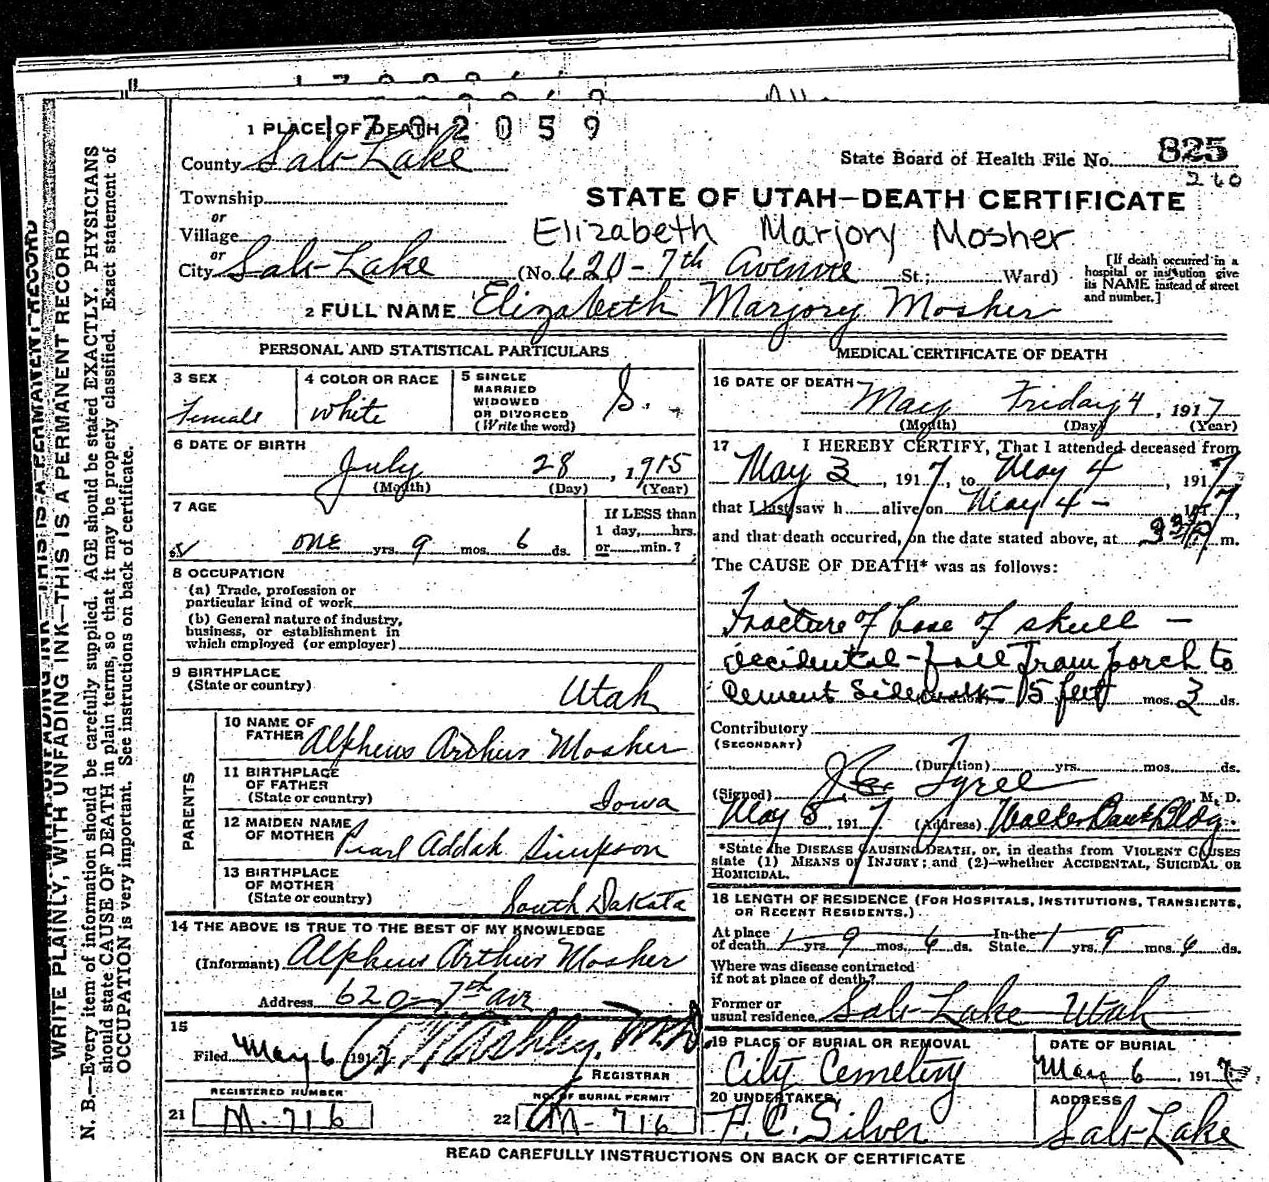 1792059
1 PLACE OF DEATH
County Salt Lake
State Board of Health File No. 825
260
Township
or
Village
or
City Salt Lake
STATE OF UTAH—DEATH CERTIFICATE
Elizabeth Marjory Mosher
(No. 620-7th Avenue St.; Ward)
[If death occurred in a
hospital or institution give
its NAME instead of street
and number.]
2 FULL NAME Elizabeth Marjory Mosher
PERSONAL AND STATISTICAL PARTICULARS
3 SEX
Female
4 COLOR OR RACE
White
5 SINGLE
MARRIED
WIDOWED
OR DIVORCED
(Write the word)
S.
6 DATE OF BIRTH
July 28, 1915
(Month) (Day) (Year)
7 AGE
one yrs. 9 mos. 6 ds.
If LESS than
1 day, hrs.
or min.?
8 OCCUPATION
(a) Trade, profession or
particular kind of work
(b) General nature of industry,
business, or establishment in
which employed (or employer)
9 BIRTHPLACE
(State or country)
Utah
PARENTS
10 NAME OF
FATHER Alpheus Arthur Mosher
11 BIRTHPLACE
OF FATHER
(State or country)
Iowa
12 MAIDEN NAME
OF MOTHER Pearl Addah Simpson
13 BIRTHPLACE
OF MOTHER
(State or country)
South Dakota
14 THE ABOVE IS TRUE TO THE BEST OF MY KNOWLEDGE
(Informant) Alpheus Arthur Mosher
Address 620-7th ave
15
Filed May 6, 1917 M.D.
REGISTRAR
REGISTERED NUMBER
21 M-716
NO. OF BURIAL PERMIT
22 M-716
MEDICAL CERTIFICATE OF DEATH
16 DATE OF DEATH
May Friday 4, 1917
(Month) (Day) (Year)
17 I HEREBY CERTIFY, That I attended deceased from
May 3, 1917, to May 4, 1917
that I last saw h alive on May 4 - 1917,
and that death occurred, on the date stated above, at m.
The CAUSE OF DEATH* was as follows:
Fracture of base of skull —
accidental - fall from porch to
cement sidewalk - 5 feet mos. 3 ds.
Contributory
(SECONDARY)
(Duration) yrs. mos. ds.
(Signed) Tyree M. D.
May 5, 1917 (Address) Walker Bank Bldg.
*State the DISEASE CAUSING DEATH, or, in deaths from VIOLENT CAUSES
state (1) MEANS OF INJURY; and (2)—whether ACCIDENTAL, SUICIDAL OR
HOMICIDAL.
18 LENGTH OF RESIDENCE (FOR HOSPITALS, INSTITUTIONS, TRANSIENTS,
OR RECENT RESIDENTS.)
At place In the
of death 1 yrs. 9 mos. 6 ds. State 1 yrs. 9 mos. 6 ds.
Where was disease contracted
if not at place of death?
Former or
usual residence Salt Lake Utah
19 PLACE OF BURIAL OR REMOVAL
City Cemetery
DATE OF BURIAL
May 6, 1917
20 UNDERTAKER
F. C. Silver
ADDRESS
Salt Lake
READ CAREFULLY INSTRUCTIONS ON BACK OF CERTIFICATE
WRITE PLAINLY, WITH UNFADING INK—THIS IS A PERMANENT RECORD
N. B.—Every item of information should be carefully supplied. AGE should be stated EXACTLY. PHYSICIANS
should state CAUSE OF DEATH in plain terms, so that it may be properly classified. Exact statement of
OCCUPATION is very important. See instructions on back of certificate.